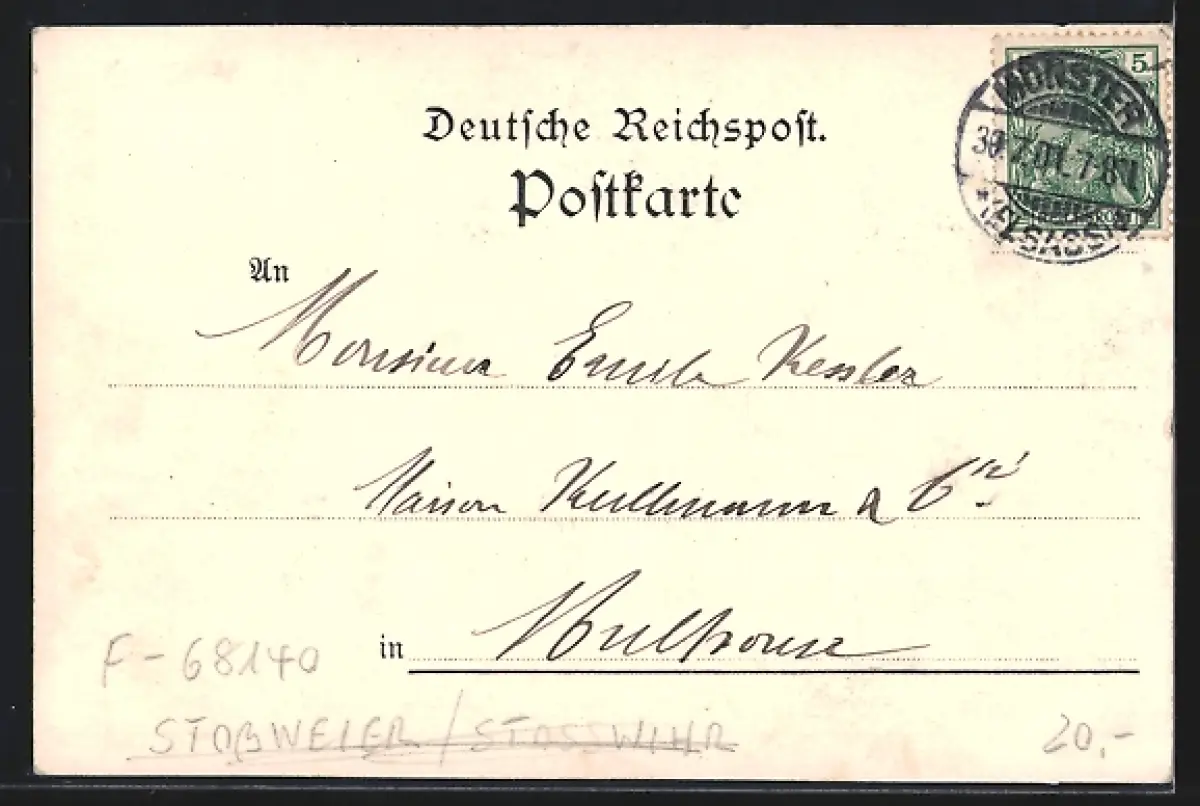 Deutsche Reichspost.
Postkarte
5
MÜNSTER
30.7.01.7-8N
*(ELSASS)*
An
Monsieur Emile Kessler
Maison Kullmann & Cie
in Mulhouse
F-68140
STOßWEIER / STOSSWIHR
20,-